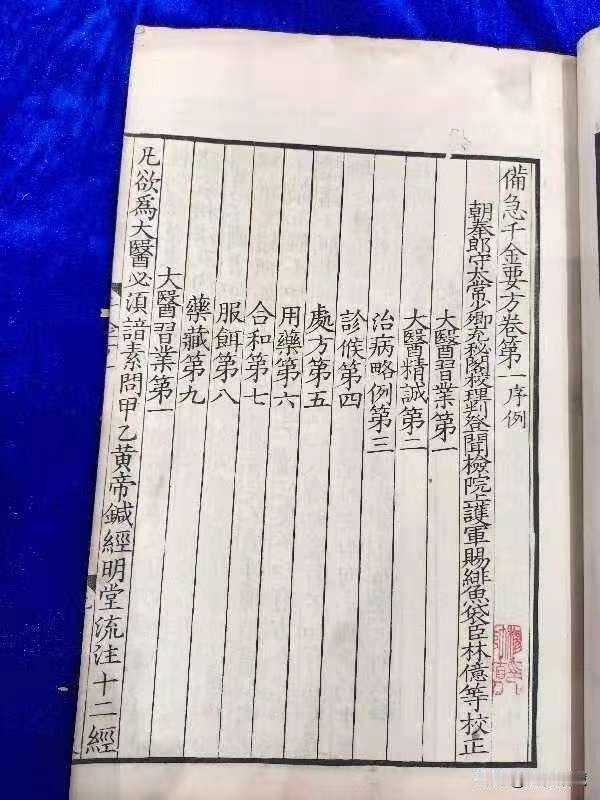 備急千金要方卷第一 序例
朝奉郎守太常少卿充秘閣校理判登聞檢院上護軍賜緋魚袋臣林億等校正
大醫習業第一
大醫精誠第二
治病略例第三
診候第四
處方第五
用藥第六
合和第七
服餌第八
藥藏第九
大醫習業第一
凡欲爲大醫必須諳素問甲乙黃帝鍼經明堂流注十二經